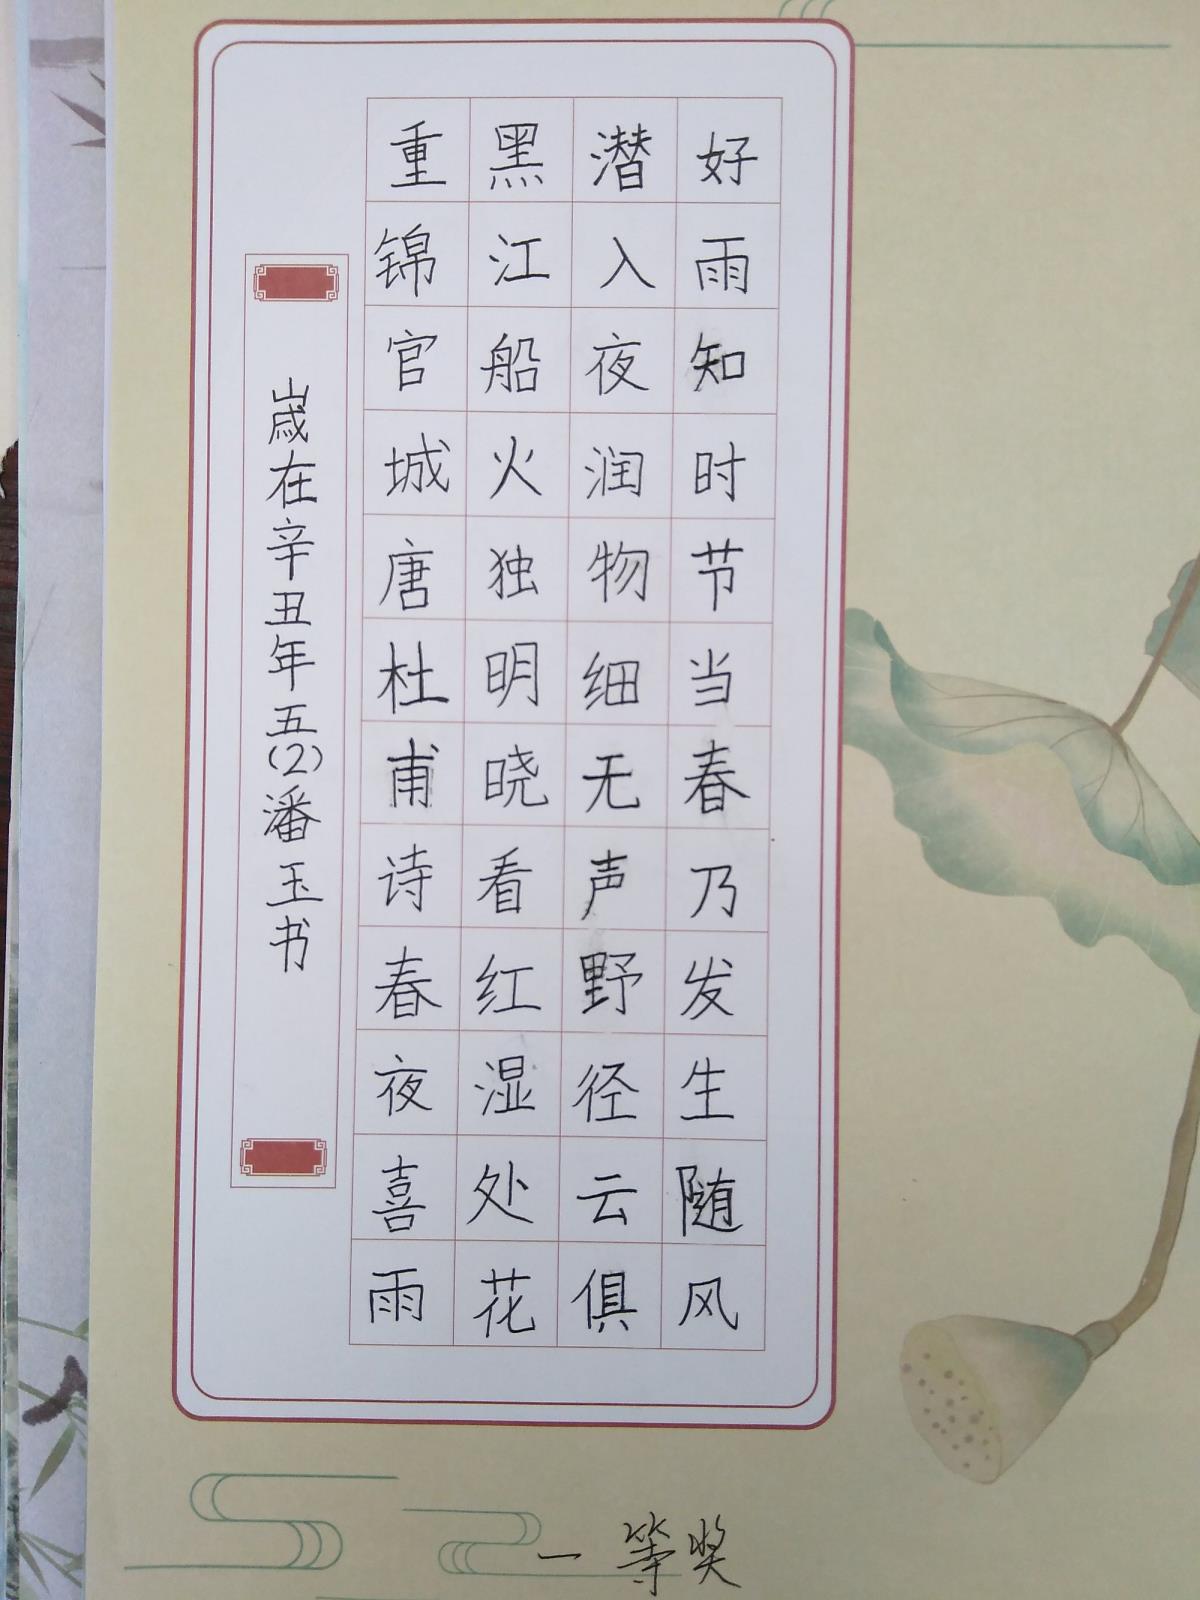 好雨知时节当春乃发生随风
潜入夜润物细无声野径云俱
黑江船火独明晓看红湿处花
重锦官城唐杜甫诗春夜喜雨
岁在辛丑年五(2)潘玉书
一等奖